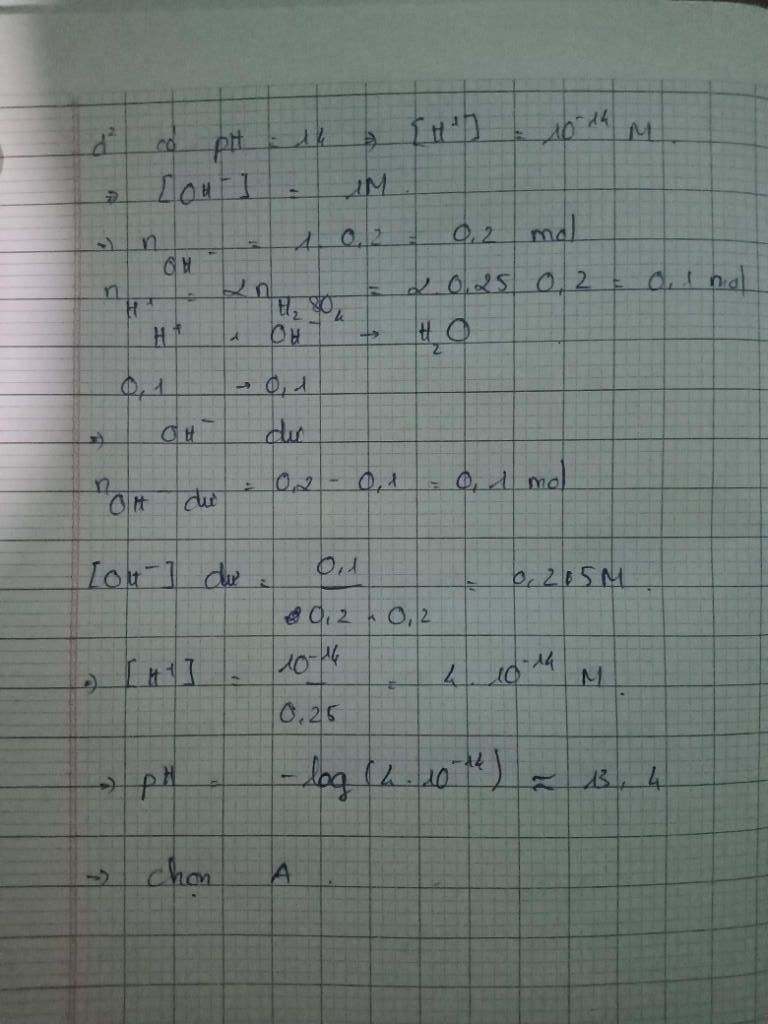 d² có pH = 14 ⇒ [H⁺] = 10⁻¹⁴ M.
⇒ [OH⁻] = 1M
⇒ n OH⁻ = 1 . 0,2 = 0,2 mol
n H⁺ = 2n H₂SO₄ = 2 . 0,25 . 0,2 = 0,1 mol
H⁺ + OH⁻ → H₂O
0,1 → 0,1
⇒ OH⁻ dư
n OH⁻ dư = 0,2 - 0,1 = 0,1 mol
[OH⁻] dư = 0,1 / 0,2 + 0,2 = 0,25M.
⇒ [H⁺] = 10⁻¹⁴ / 0,25 = 4 . 10⁻¹⁴ M.
⇒ pH = -log(4 . 10⁻¹⁴) ≈ 13,4
→ chọn A.